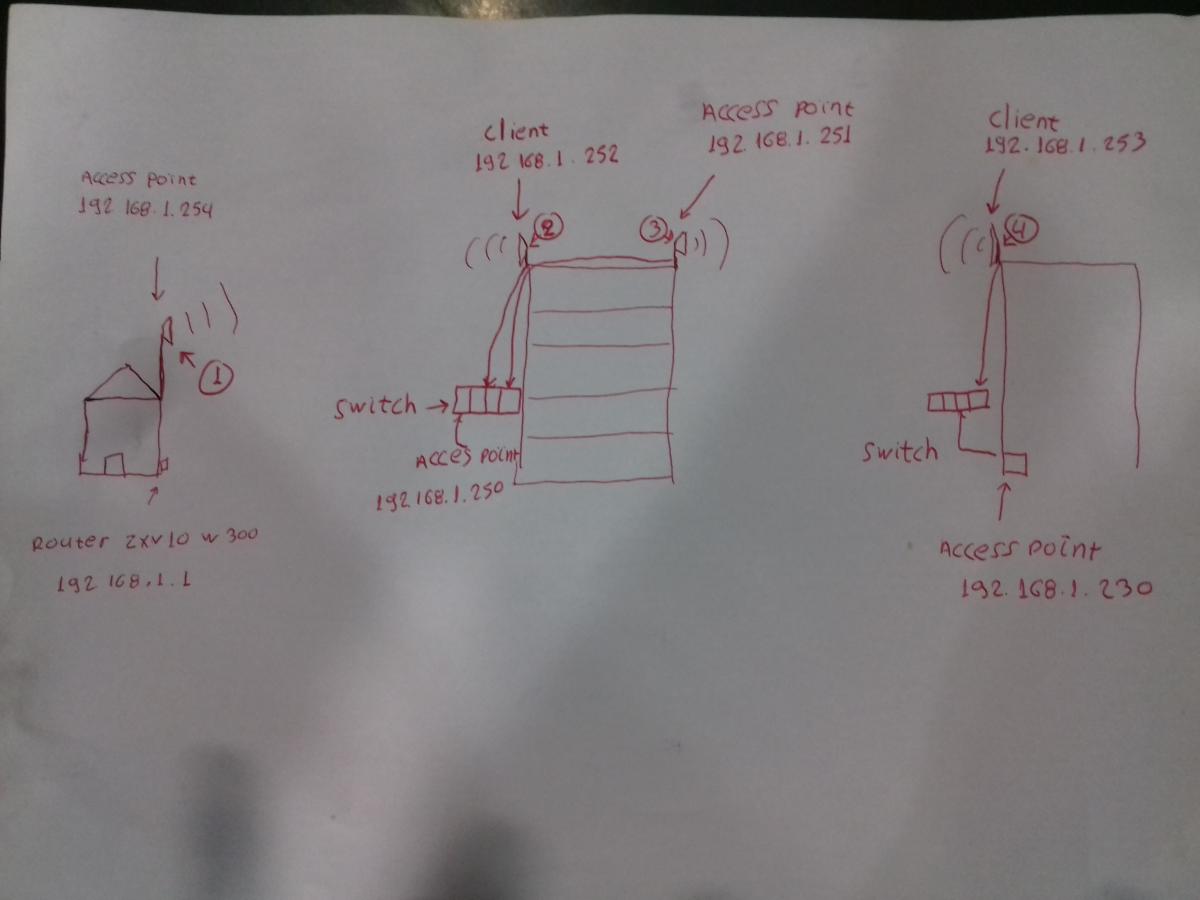 Access point
192 168.1.254
1
Router zxv10 w300
192 168.1.1
client
192 168.1.252
2
Access point
192.168.1.251
3
switch
Acces point
192.168.1.250
client
192.168.1.253
4
switch
Access point
192.168.1.230